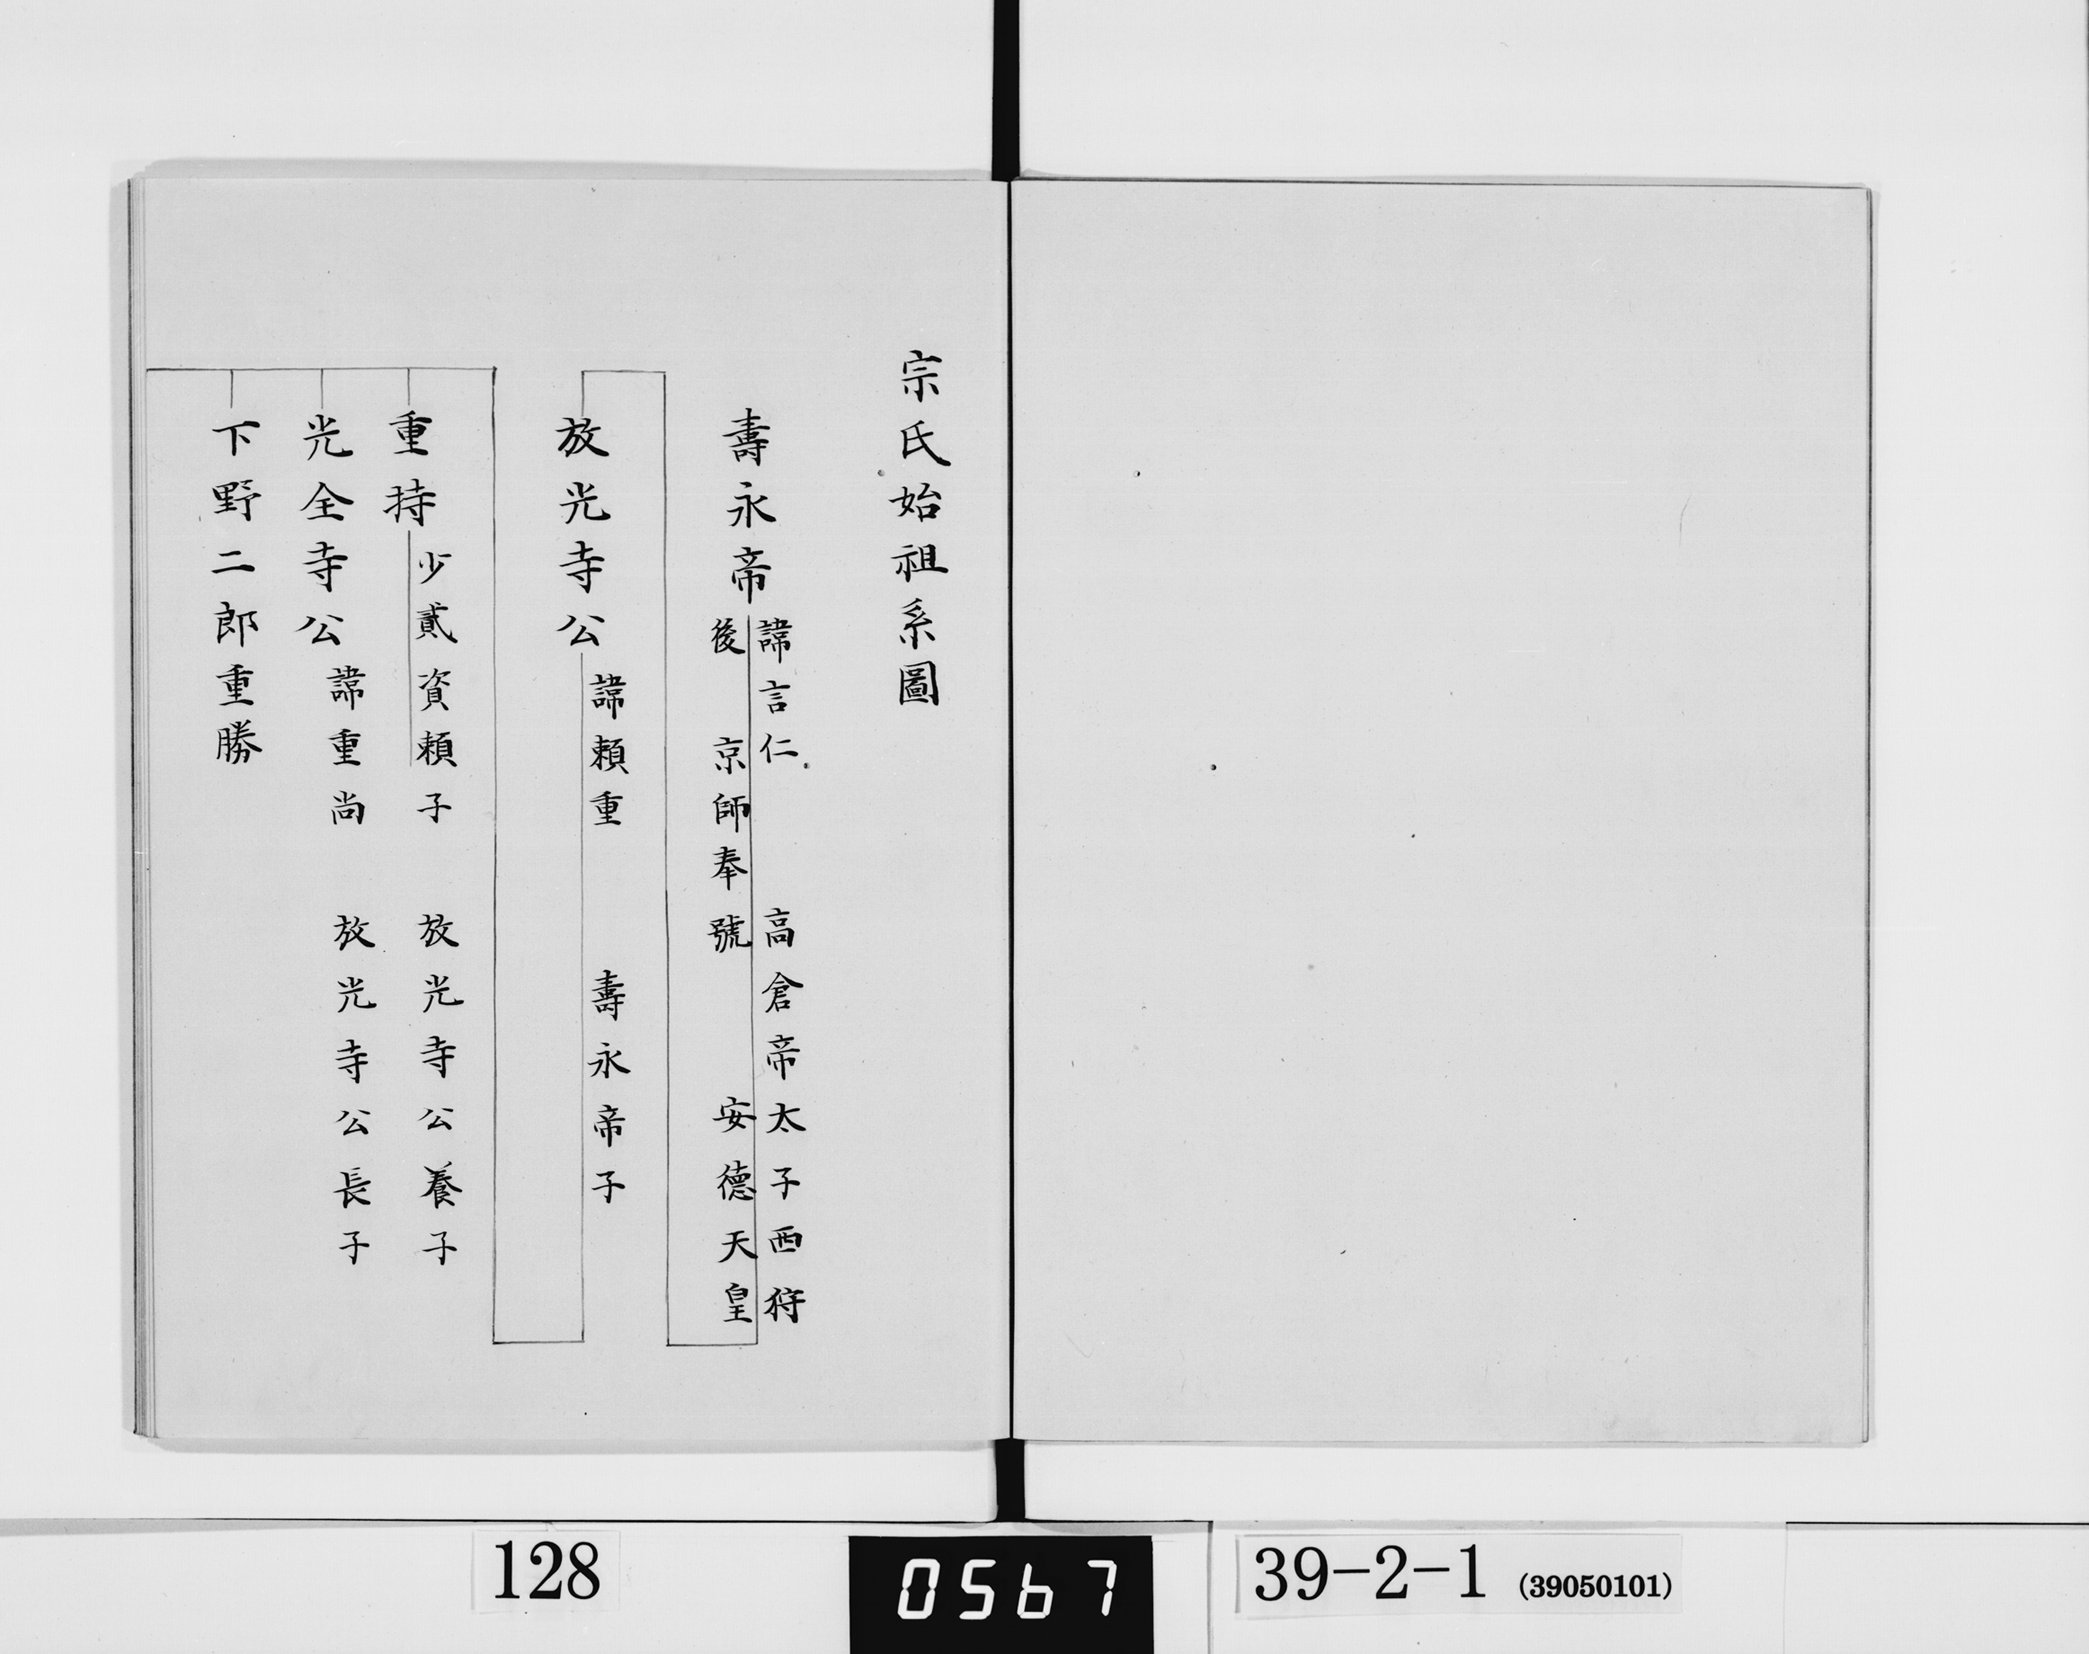 宗氏始祖系圖
壽永帝
諱言仁 高倉帝太子西狩
後 京師奉號 安德天皇
放光寺公
諱頼重 壽永帝子
重持
少貳資頼子 放光寺公養子
光全寺公
諱重尚 放光寺公長子
下野二郎重勝
128
0567
39-2-1 (39050101)